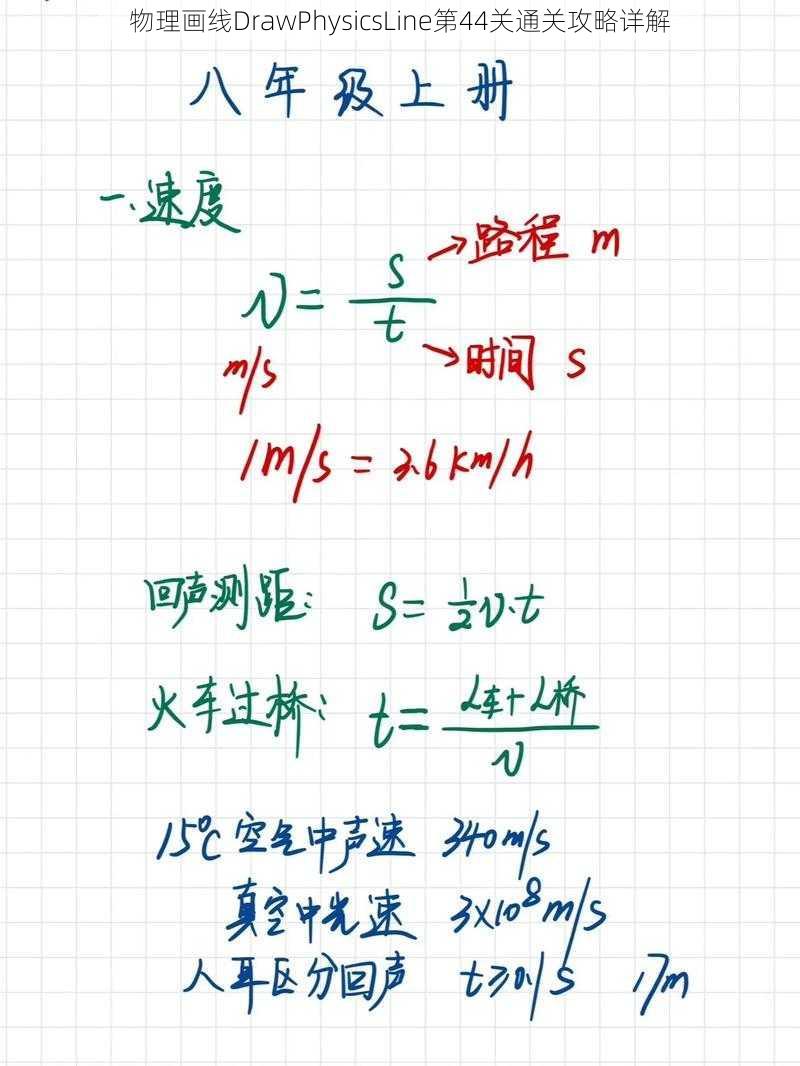 物理画线DrawPhysicsLine第44关通关攻略详解
八年级上册
一、速度
v = s/t →路程 m
→时间 s
m/s
1m/s = 3.6km/h
回声测距: S = 1/2 v·t
火车过桥: t = (L车+L桥)/v
15℃空气中声速 340m/s
真空中光速 3×10⁸m/s
人耳区分回声 t≥0.1s 17m